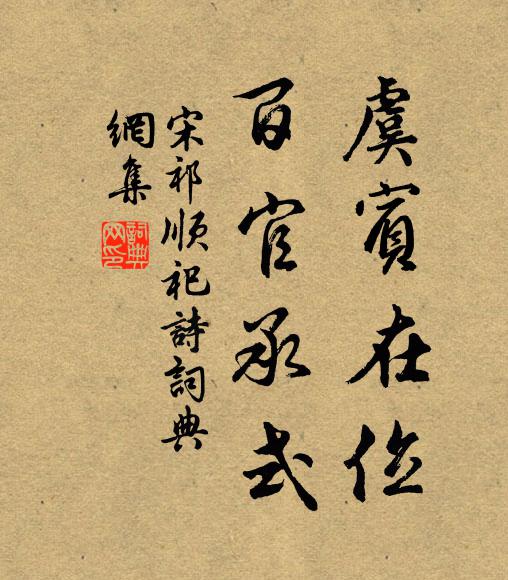 虞賓在位
百官承式
宋祁順祀詩詞典
網集
詞典網印